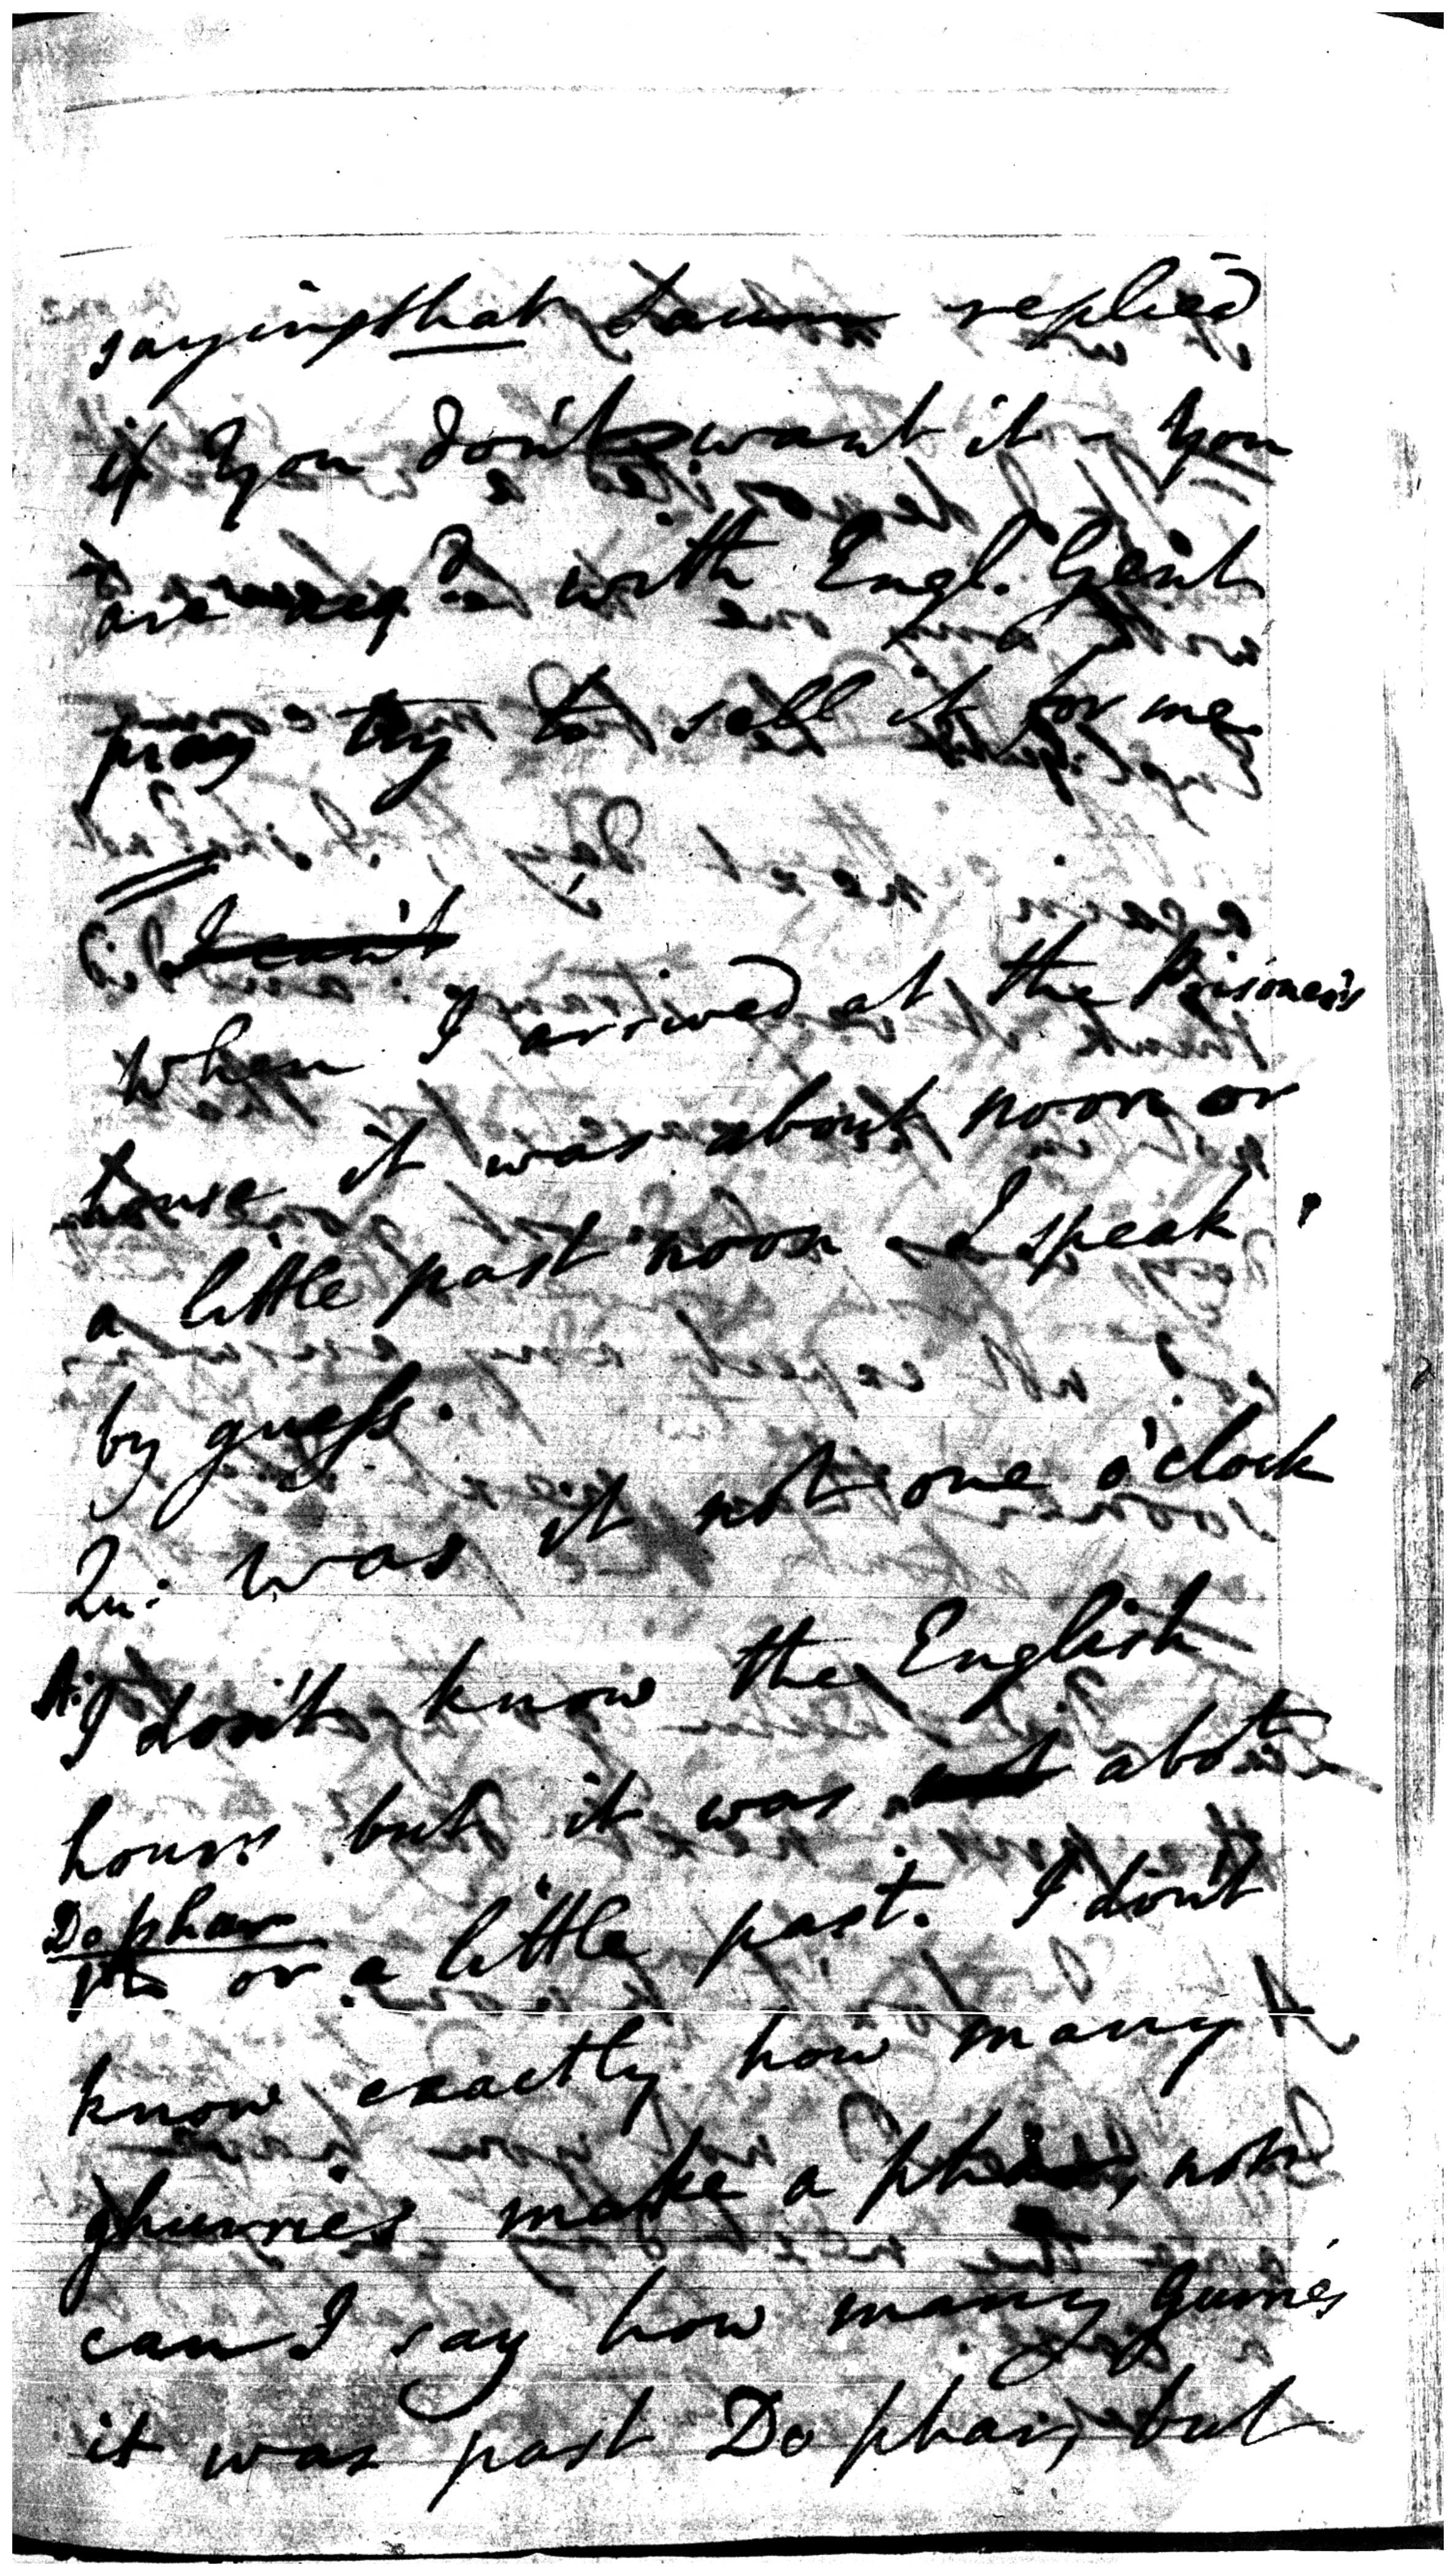 saying that replied
if you don't want it – you
are acq.d with Engl. Gent
pray try to sell it for me
I can't
When I arrived at the Prisoner's
house it was about noon or
a little past noon I speak
by guess.
Qu: was it not one o'clock
A: I don't know the English
hours but it was abot
Do phar
or a little past. I don't
know exactly how many
ghurries make a phar, nor
can I say how many Gurries
it was past Do phar, but